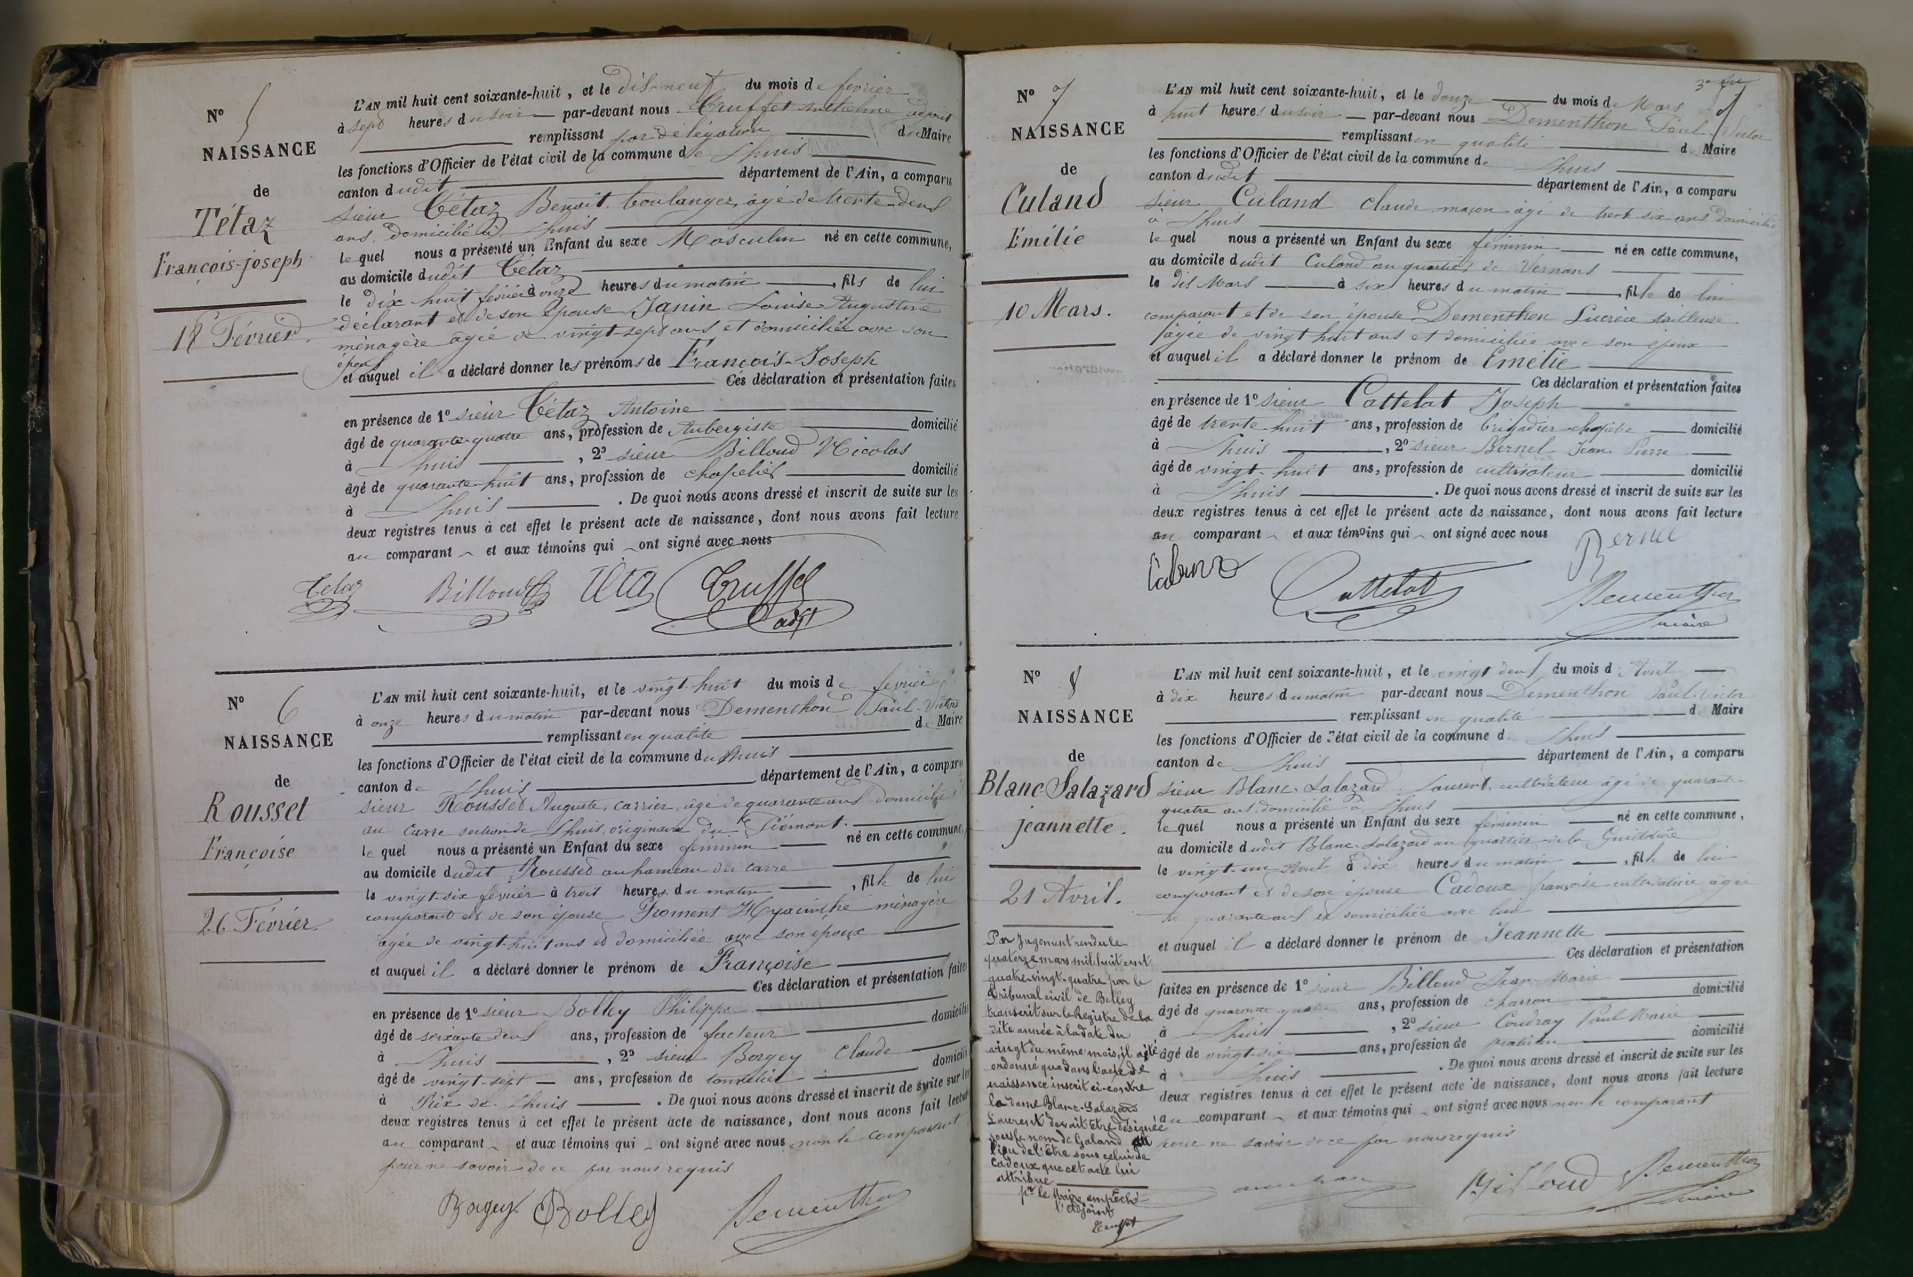 N° 5
NAISSANCE
de
Tétaz
François-joseph
18 Février
L'AN mil huit cent soixante-huit, et le dix-neuf du mois de février
à sept heures du soir par-devant nous Truffet adjoint
remplissant par délégation de Maire
les fonctions d'Officier de l'état civil de la commune de Lhuis
canton dudit département de l'Ain, a comparu
sieur Tétaz Benoit boulanger, âgé de trente-deux
ans, domicilié à Lhuis
lequel nous a présenté un Enfant du sexe Masculin né en cette commune,
au domicile dudit Tétaz
le dix huit février à onze heures du matin, fils de lui
déclarant et de son épouse Janin Louise Augustine
ménagère agée de vingt sept ans et domiciliée avec son
époux
et auquel il a déclaré donner les prénoms de François-Joseph
Ces déclaration et présentation faites
en présence de 1° sieur Tétaz Antoine
âgé de quarante quatre ans, profession de Aubergiste domicilié
à Lhuis, 2° sieur Billoud Nicolas
âgé de quarante-huit ans, profession de chapelier domicilié
à Lhuis. De quoi nous avons dressé et inscrit de suite sur les
deux registres tenus à cet effet le présent acte de naissance, dont nous avons fait lecture
au comparant et aux témoins qui ont signé avec nous
Tétaz Billoud Tétaz Truffet
adjt
N° 6
NAISSANCE
de
Rousset
Françoise
26 Février
L'AN mil huit cent soixante-huit, et le vingt-huit du mois de février
à onze heures du matin par-devant nous Dementhon Paul-Victor
remplissant en qualité de Maire
les fonctions d'Officier de l'état civil de la commune de Lhuis
canton de Lhuis département de l'Ain, a comparu
sieur Rousset Auguste, carrier, âgé de quarante ans, domicilié
au Carre section de Lhuis, originaire du Piémont
lequel nous a présenté un Enfant du sexe féminin né en cette commune,
au domicile dudit Rousset au hameau du Carre
le vingt-six février à trois heures du matin, fille de lui
comparant et de son épouse Froment Hyacinthe ménagère
agée de vingt-huit ans et domiciliée avec son époux
et auquel il a déclaré donner le prénom de Françoise
Ces déclaration et présentation faites
en présence de 1° sieur Bolley Philippe
âgé de soixante deux ans, profession de facteur domicilié
à Lhuis, 2° sieur Borgey Claude
âgé de vingt-sept ans, profession de tonnelier domicilié
à Rix de Lhuis. De quoi nous avons dressé et inscrit de suite sur les
deux registres tenus à cet effet le présent acte de naissance, dont nous avons fait lecture
au comparant et aux témoins qui ont signé avec nous non le comparant
pour ne savoir de ce par nous requis
Borgey Bolley Dementhon
3e
N° 7
NAISSANCE
de
Culand
Emilie
10 Mars.
L'AN mil huit cent soixante-huit, et le douze du mois de Mars
à huit heures du soir par-devant nous Dementhon Paul Victor
remplissant en qualité de Maire
les fonctions d'Officier de l'état civil de la commune de Lhuis
canton dudit département de l'Ain, a comparu
sieur Culand Claude maçon âgé de trente six ans domicilié
à Lhuis
lequel nous a présenté un Enfant du sexe féminin né en cette commune,
au domicile dudit Culand au quartier de Vernans
le dix Mars à six heures du matin, fille de lui
comparant et de son épouse Dementhon Lucrèce tailleuse
âgée de vingt huit ans et domiciliée avec son époux
et auquel il a déclaré donner le prénom de Emélie
Ces déclaration et présentation faites
en présence de 1° sieur Cattelat Joseph
âgé de trente huit ans, profession de domicilié
à Lhuis, 2° sieur Bernel Jean Pierre
âgé de vingt-huit ans, profession de cultivateur domicilié
à Lhuis. De quoi nous avons dressé et inscrit de suite sur les
deux registres tenus à cet effet le présent acte de naissance, dont nous avons fait lecture
au comparant et aux témoins qui ont signé avec nous
Bernel
Cattelat Dementhon
maire
N° 8
NAISSANCE
de
Blanc-Salazard
jeannette.
21 Avril.
L'AN mil huit cent soixante-huit, et le vingt deux du mois d'Avril
à dix heures du matin par-devant nous Dementhon Paul-Victor
remplissant en qualité de Maire
les fonctions d'Officier de l'état civil de la commune de Lhuis
canton de Lhuis département de l'Ain, a comparu
sieur Blanc-Salazard Laurent, cultivateur âgé de quarante
quatre ans, domicilié à Lhuis
lequel nous a présenté un Enfant du sexe féminin né en cette commune,
au domicile dudit Blanc-Salazard au quartier de la
le vingt-un Avril à dix heures du matin, fille de lui
comparant et de son épouse Cadoux françoise cultivatrice âgée
de quarante ans et domiciliée avec lui
et auquel il a déclaré donner le prénom de Jeannette
Ces déclaration et présentation
faites en présence de 1° sieur Billoud Jean-Marie
âgé de quarante quatre ans, profession de charron domicilié
à Lhuis, 2° sieur Coudray Paul Marie
âgé de vingt-six ans, profession de domicilié
à Lhuis. De quoi nous avons dressé et inscrit de suite sur les
deux registres tenus à cet effet le présent acte de naissance, dont nous avons fait lecture
au comparant et aux témoins qui ont signé avec nous non le comparant
pour ne savoir de ce par nous requis
Billoud Dementhon
maire
Par Jugement rendu le
quatorze mars mil huit cent
quatre-vingt-quatre par le
tribunal civil de Belley
transcrit sur le Registre de la
dite année à la date du
vingt du même mois, il a été
ordonné que dans l'acte de
naissance inscrit ci-contre
la dame Blanc-Salazard
Laurent devait être désignée
sous le nom de Galand au
lieu de l'être sous celui de
Cadoux que cet acte lui
attribue
pr le Maire empêché
l'adjoint